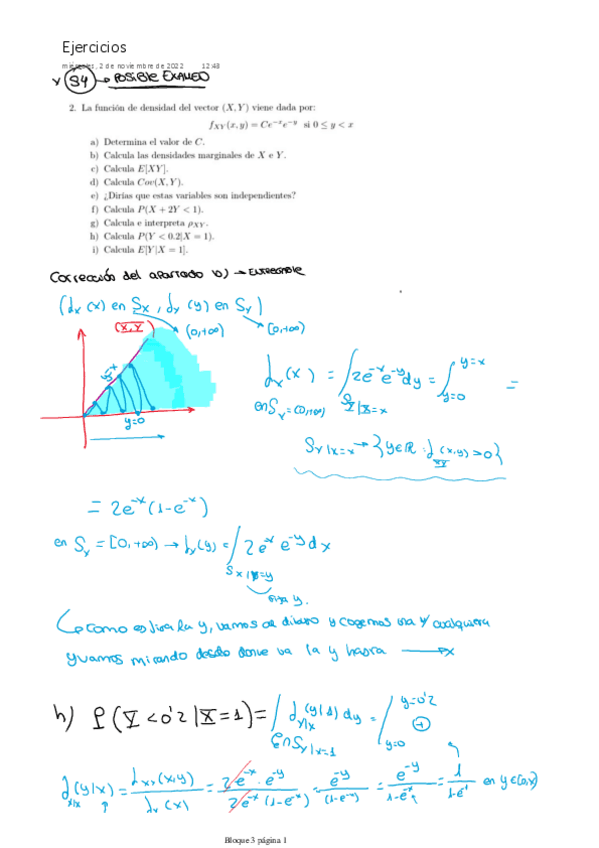 Ejercicios
miércoles, 2 de noviembre de 2022 12:43
S4 → POSIBLE EXAMEN
2. La función de densidad del vector (X, Y) viene dada por:
f_XY(x, y) = Ce^{-x}e^{-y} si 0 ≤ y < x
a) Determina el valor de C.
b) Calcula las densidades marginales de X e Y.
c) Calcula E[XY].
d) Calcula Cov(X, Y).
e) ¿Dirías que estas variables son independientes?
f) Calcula P(X + 2Y < 1).
g) Calcula e interpreta ρ_XY.
h) Calcula P(Y < 0.2|X = 1).
i) Calcula E[Y|X = 1].
Corrección del apartado b) →
(f_x (x) en S_X, f_y (y) en S_Y)
(X,Y) (0,+∞) [0,+∞)
y=x
y=0
f_x(x) = ∫ 2e^{-x}e^{-y}dy = ∫ y=x y=0 =
en S_x = (0,+∞) S_Y|X=x
S_Y|X=x → {y∈R : f_XY (x,y) > 0}
= 2e^{-x}(1-e^{-x})
en S_Y = [0,+∞) → f_y(y) = ∫ 2e^{-x} e^{-y} dx
S_X|Y=y
fija y.
como es fija la y, vamos al dibujo y cogemos una y cualquiera
y vamos mirando desde donde va la y hasta → x
h) P(Y < 0'2 | X = 1) = ∫ f_Y|X (y|1) dy = ∫ y=0'2 y=0
en S_Y|X=1
f_Y|X (y|x) = f_XY(x,y) / f_X(x) = 2e^{-x}·e^{-y} / 2e^{-x}(1-e^{-x}) = e^{-y} / (1-e^{-x}) = e^{-y} / 1-e^{-x} = 1 / 1-e^{-1} en y∈(0,x)
Bloque 3 página 1